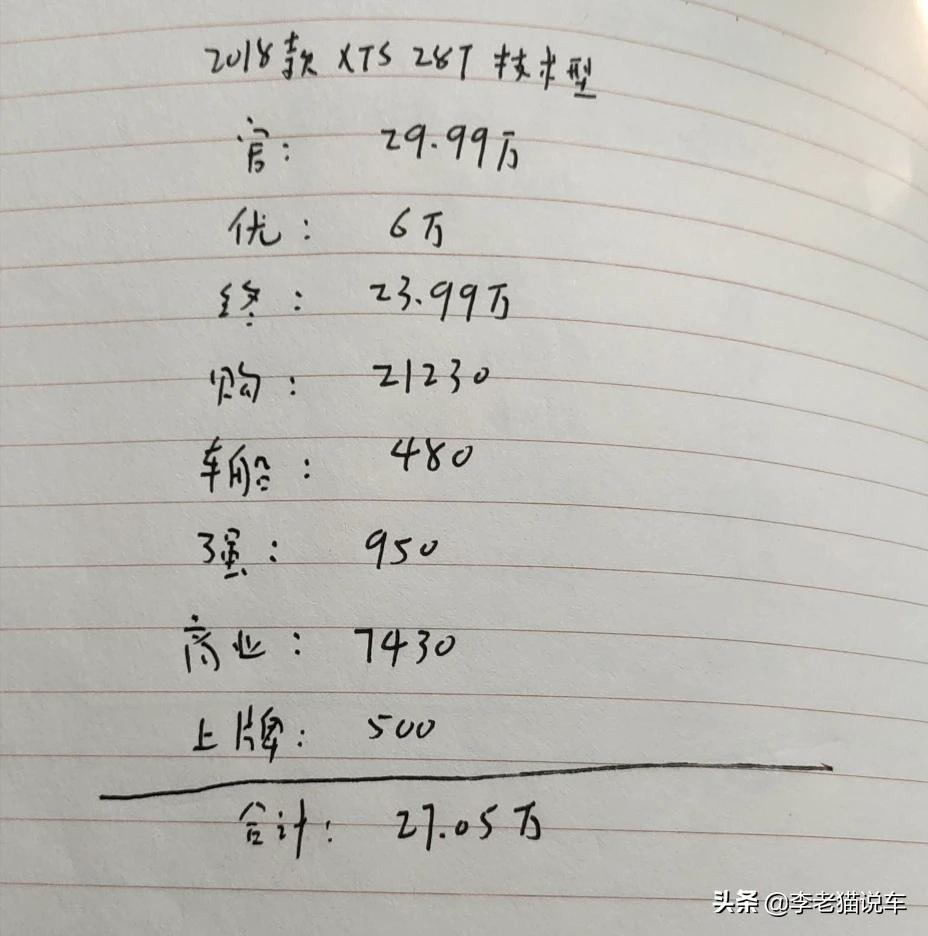 2018款 XTS 28T 技术型
官: 29.99万
优: 6万
终: 23.99万
购: 21230
车船: 480
强: 950
商业: 7430
上牌: 500
合计: 27.05万
头条 @李老猫说车